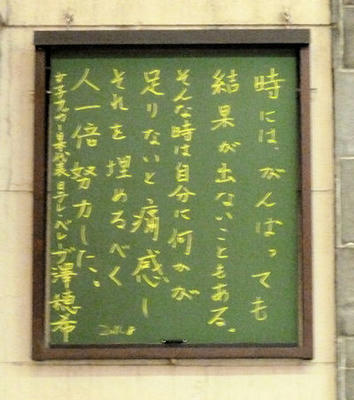 時には、がんばっても
結果が出ないこともある。
そんな時は自分に何かが
足りないと痛感し
それを埋めるべく
人一倍努力した。
女子サッカー日本代表 日テレ・ベレーザ 澤穂希